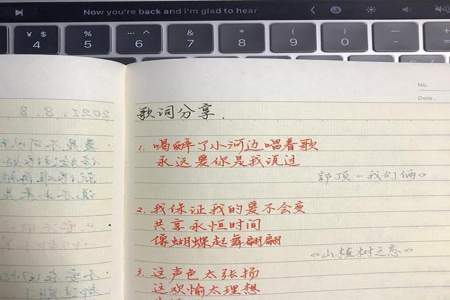 Now you're back and i'm glad to hear
¥ $
4
%
5
…… ^
6
& 
7
*
8
(
9
)
0
No.
Date.
歌词分享.
1. 喝醉了小河边唱着歌
永远爱你是我说过
郭顶-我们俩》
2. 我保证我的爱不会变
共享永恒时间
像蝴蝶起舞翩翩
《山楂树之恋》
3. 这声色太张扬
这欢愉太理想